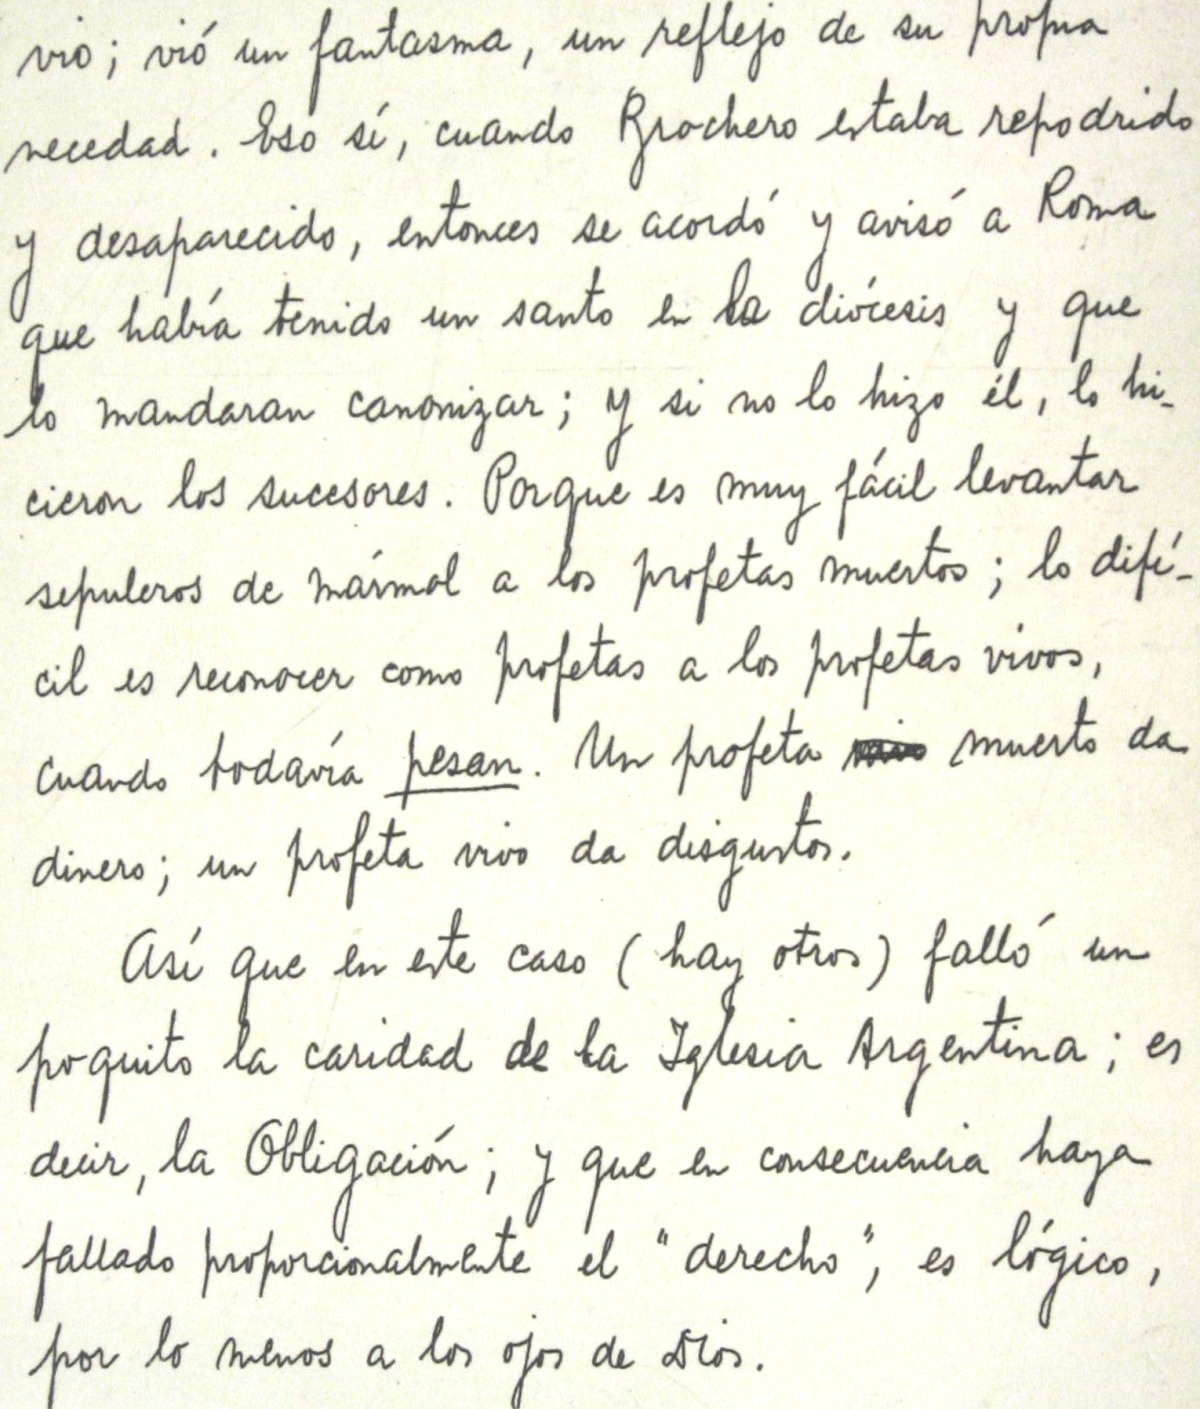 vio; vió un fantasma, un reflejo de su propia
necedad. Eso sí, cuando Brochero estaba repodrido
y desaparecido, entonces se acordó y avisó a Roma
que había tenido un santo en la diócesis y que
lo mandaran canonizar; y si no lo hizo él, lo hi-
cieron los sucesores. Porque es muy fácil levantar
sepulcros de mármol a los profetas muertos; lo difí-
cil es reconocer como profetas a los profetas vivos,
cuando todavía pesan. Un profeta muerto da
dinero; un profeta vivo da disgustos.
Así que en este caso (hay otros) falló un
poquito la caridad de la Iglesia Argentina; es
decir, la Obligación; y que en consecuencia haya
fallado proporcionalmente el "derecho", es lógico,
por lo menos a los ojos de Dios.